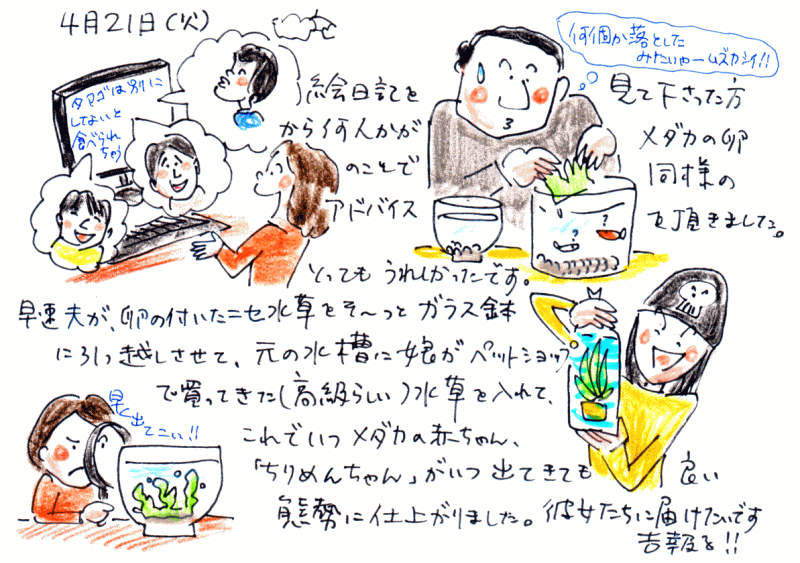 4月21日(火)
タマゴは別に
してないと
食べられ
ちゃう
何個か落とした
みたいやームズカシイ!!
絵日記を 見て下さった方
から何人かが メダカの卵
のことで 同様の
アドバイス を頂きました。
とってもうれしかったです。
早速夫が、卵の付いたニセ水草をそ〜っと ガラス鉢
に引っ越しさせて、元の水槽に娘がペットショップ
で買ってきた(高級らしい)水草を入れて、
早く出てこい!!
これでいつメダカの赤ちゃん、
「ちりめんちゃん」がいつ出てきても 良い
態勢に仕上がりました。彼女たちに届けたいです
吉報を!!